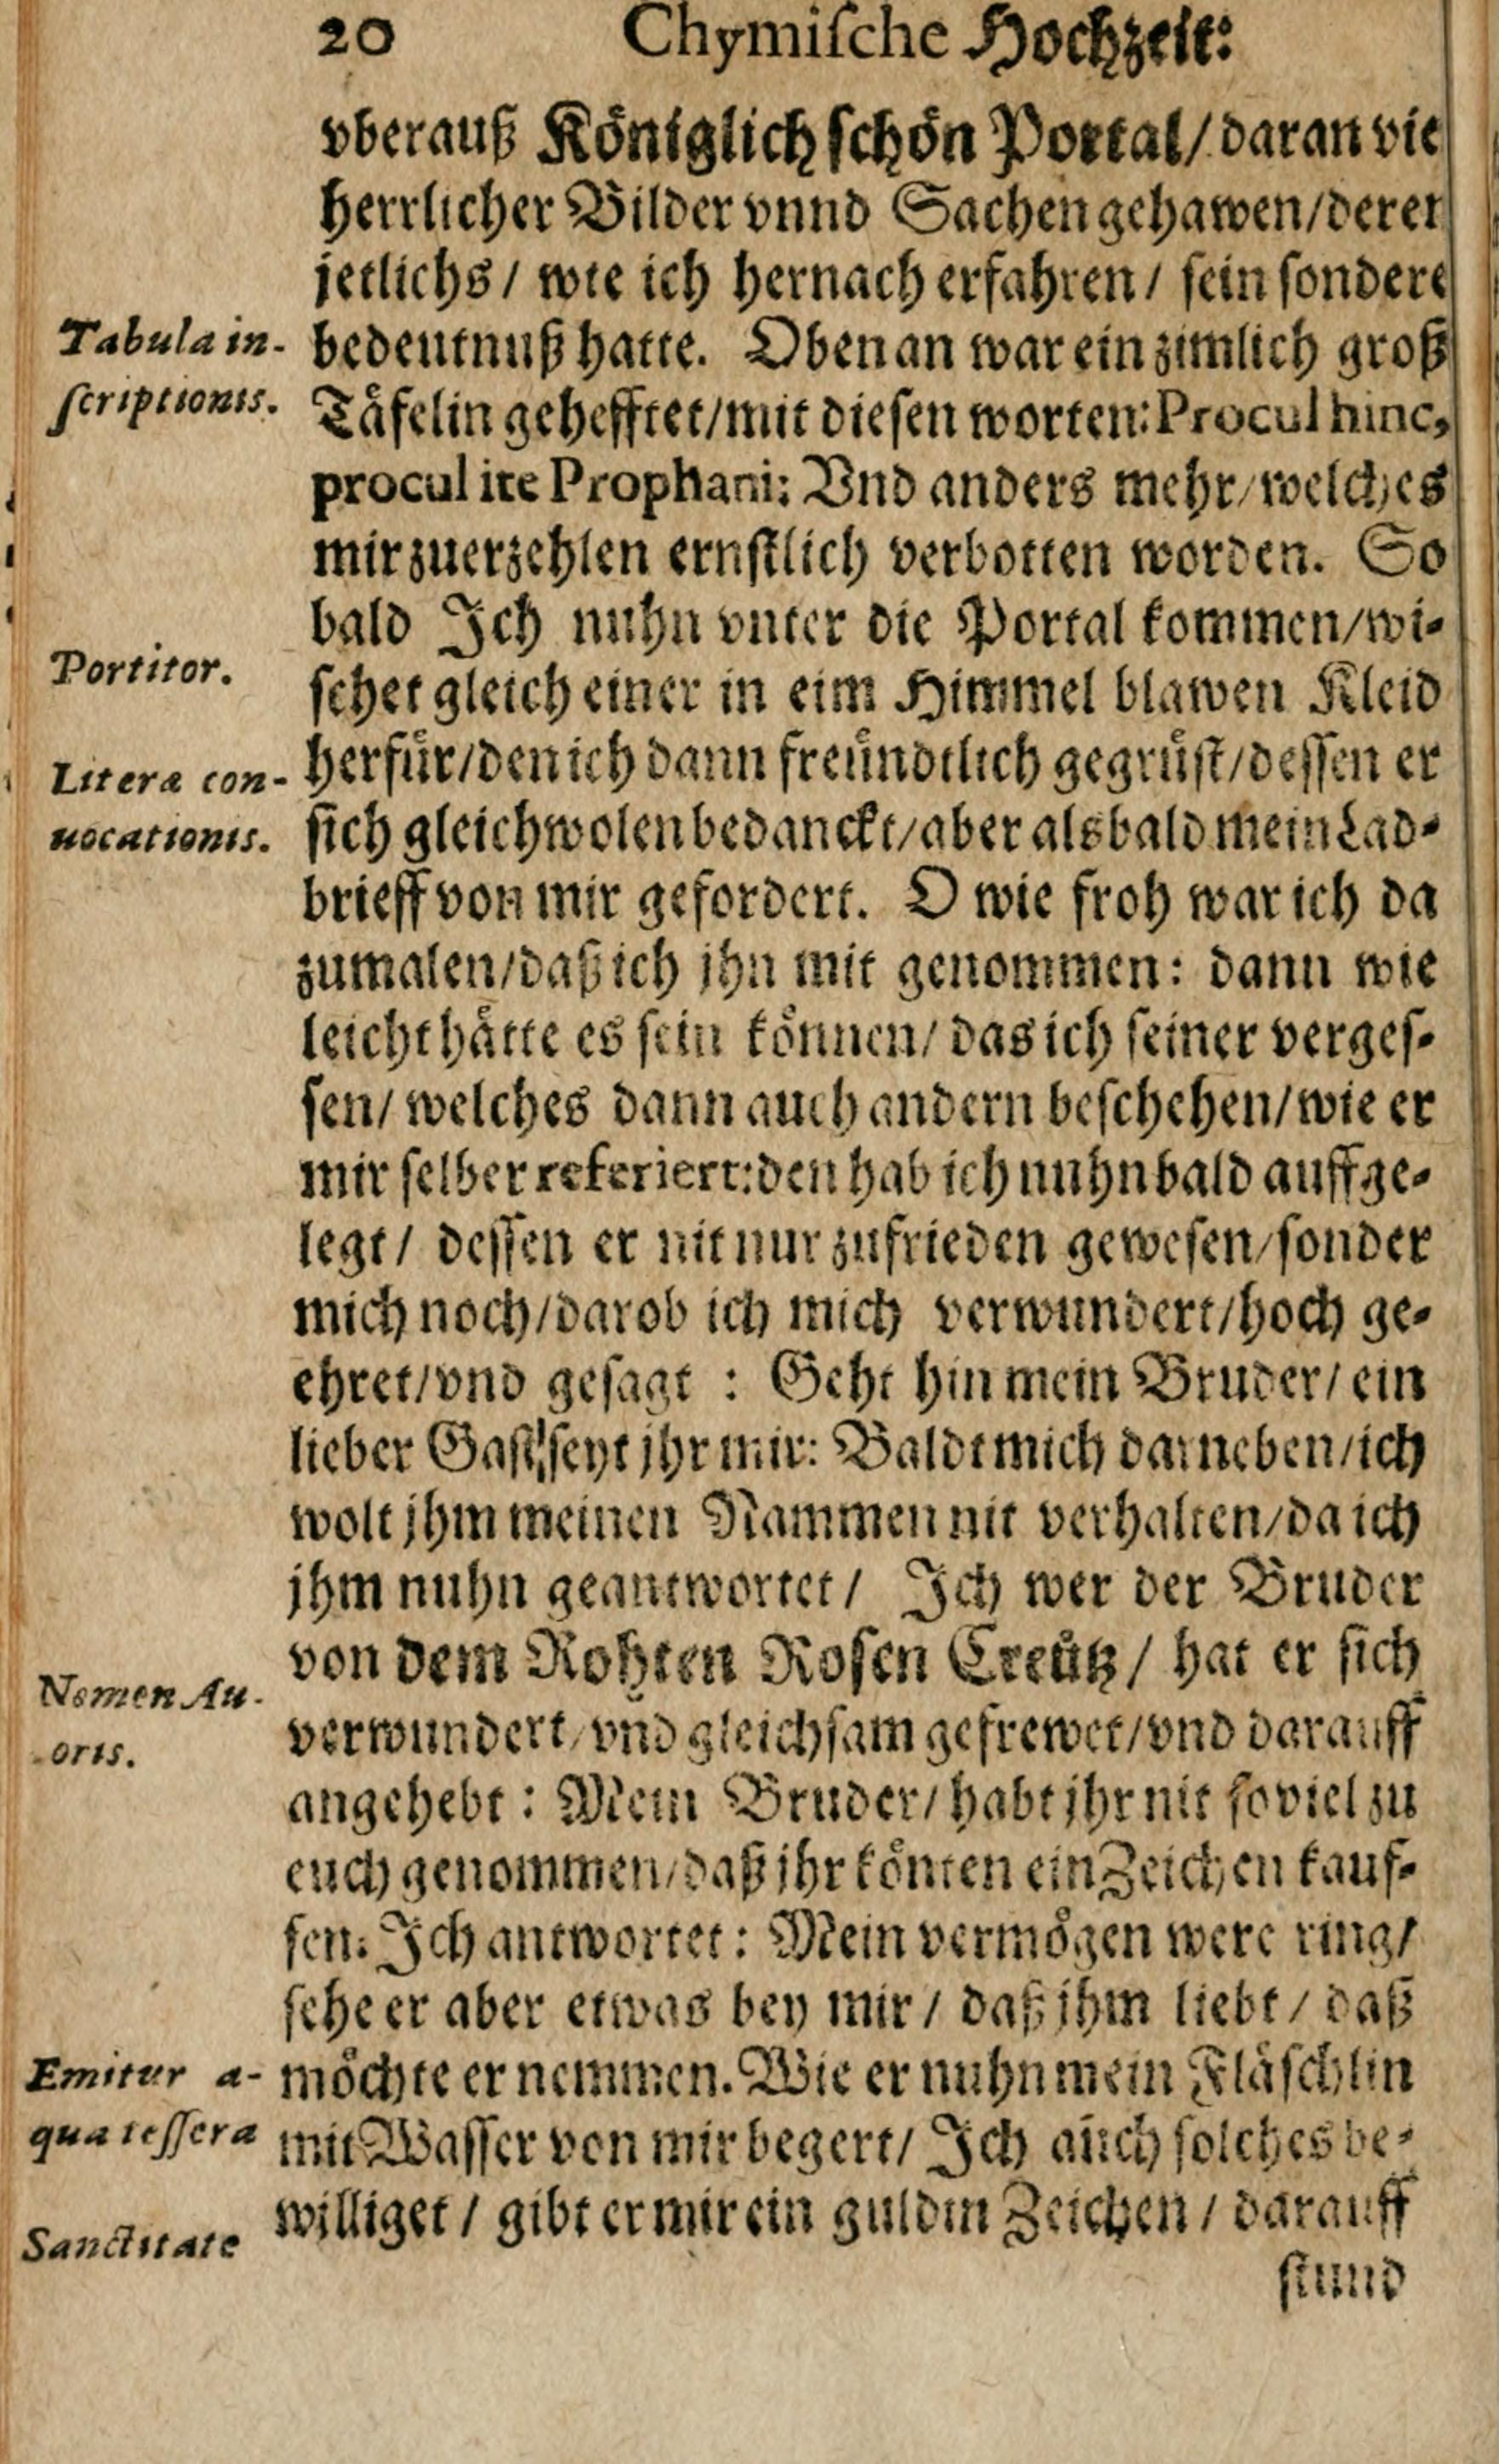 20 Chymische Hochzeit:
vberauß Königlich schön Portal/ daran vie
herrlicher Bilder vnnd Sachen gehawen/derer
jetlichs/ wie ich hernach erfahren/ sein sondere
Tabula in-
scriptionis.
bedeutnuß hatte. Oben an war ein zimlich groß
Tåfelin gehefftet/mit diesen worten: Procul hinc,
procul ite Prophani: Vnd anders mehr/welches
mir zuerzehlen ernstlich verbotten worden. So
bald Ich nuhn vnter die Portal kommen/wi-
Portitor.
schet gleich einer in eim Himmel blawen Kleid
Literæ con-
uocationis.
herfür/den ich dann freündtlich gegrüst/dessen er
sich gleichwolen bedanckt/aber alsbald mein Lad-
brieff von mir gefordert. O wie froh war ich da
zumalen/daß ich jhn mit genommen: dann wie
leicht hätte es sein können/ das ich seiner verges-
sen/ welches dann auch andern beschehen/wie er
mir selber referiert: den hab ich nuhn bald auffge-
legt/ dessen er nit nur zufrieden gewesen/sonder
mich noch/darob ich mich verwundert/hoch ge-
ehret/vnd gesagt : Geht hin mein Bruder/ ein
lieber Gast seyt jhr mir: Baldt mich darneben/ich
wolt jhm meinen Nammen nit verhalten/da ich
jhm nuhn geantwortet/ Ich wer der Bruder
von dem Rohten Rosen Creütz/ hat er sich
Nomen Au-
oris.
verwundert/vnd gleichsam gefrewet/vnd darauff
angehebt : Mein Bruder/ habt jhr nit soviel zu
euch genommen/daß jhr könten ein Zeichen kauf-
fen. Ich antwortet: Mein vermögen were ring/
sehe er aber etwas bey mir/ daß jhm liebt/ daß
Emitur a-
qua tessera
möchte er nemmen. Wie er nuhn mein Fläschlin
mit Wasser von mir begert/ Ich auch solches be-
Sanctitate
williget/ gibt er mir ein guldin Zeichen/ darauff
stund